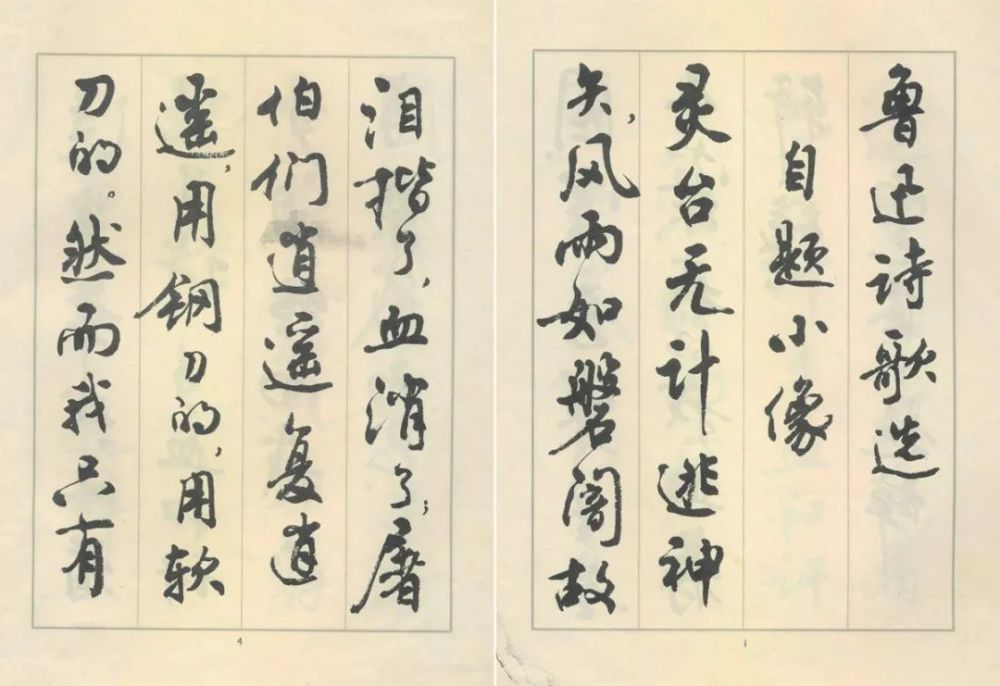 鲁迅诗歌选
自题小像
灵台无计逃神
矢，风雨如磐闇故
1
泪揩了，血消了；屠
伯们逍遥复逍
遥，用钢刀的，用软
刀的。然而我只有
4